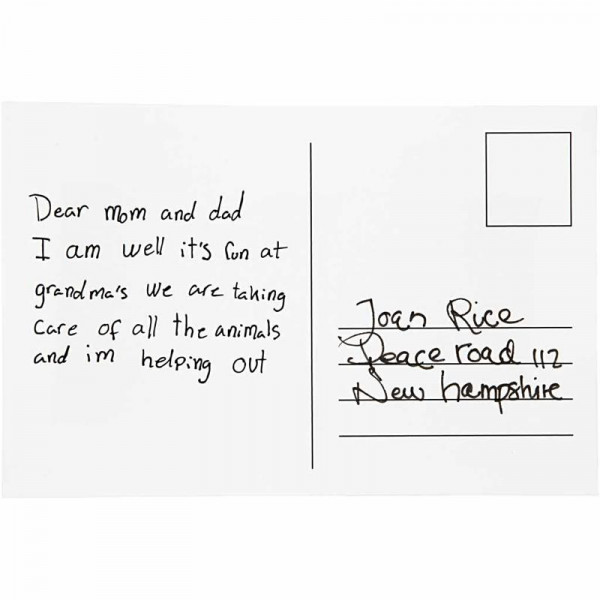 Dear mom and dad
I am well it's fun at
grandma's we are taking
care of all the animals
and im helping out
Joan Rice
Peace road 112
New hampshire